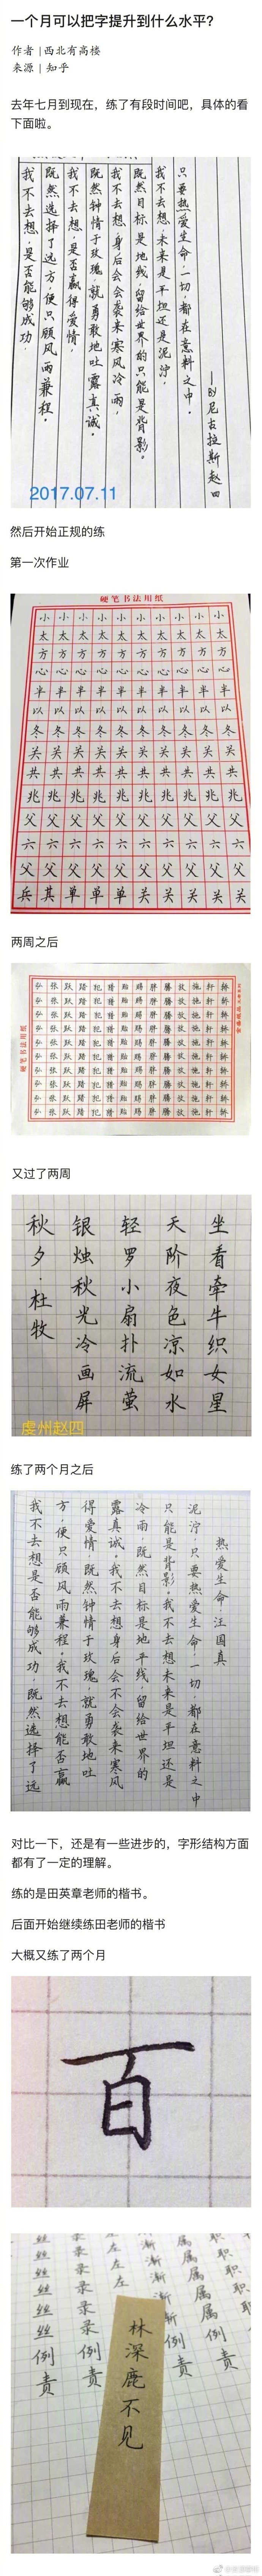 一个月可以把字提升到什么水平?
作者 | 西北有高楼
来源 | 知乎
去年七月到现在，练了有段时间吧，具体的看
下面啦。
只要热爱生命，一切，都在意料之中。
——by尼古拉斯赵四
我不去想，未来是平坦还是泥泞，
既然目标是地线，留给世界的只能是背影。
我不去想，身后会会袭来寒风冷雨，
既然钟情于玫瑰，就勇敢地吐露真诚。
我不去想，是否赢得爱情，
既然选择了远方，便只顾风雨兼程。
我不去想，是否能够成功，
2017.07.11
然后开始正规的练
第一次作业
硬笔书法用纸
小小小小小小小小小
太太太太太太太太太
方方方方方方方方方
心心心心心心心心心
半半半半半半半半半
以以以以以以以以以
冬冬冬冬冬冬冬冬冬
关关关关关关关关关
共共共共共共共共共
兆兆兆兆兆兆兆兆兆
父父父父父父父父父
六六六六六六六六六
父父父父父父父父父
兵其单单单关关关关
两周之后
硬笔书法用纸
又过了两周
坐看牵牛织女星
天阶夜色凉如水
轻罗小扇扑流萤
银烛秋光冷画屏
秋夕·杜牧
虔州赵四
练了两个月之后
热爱生命·汪国真
泥泞，只要热爱生命，一切，都在意料之中
只能是背影。我不去想未来是平坦还是
冷雨，既然目标是地平线，留给世界的
露真诚。我不去想身后会不会袭来寒风
得爱情，既然钟情于玫瑰，就勇敢地吐
方，便只顾风雨兼程。我不去想能否赢
我不去想是否能够成功，既然选择了远
对比一下，还是有一些进步的，字形结构方面
都有了一定的理解。
练的是田英章老师的楷书。
后面开始继续练田老师的楷书
大概又练了两个月
百
林深鹿不见